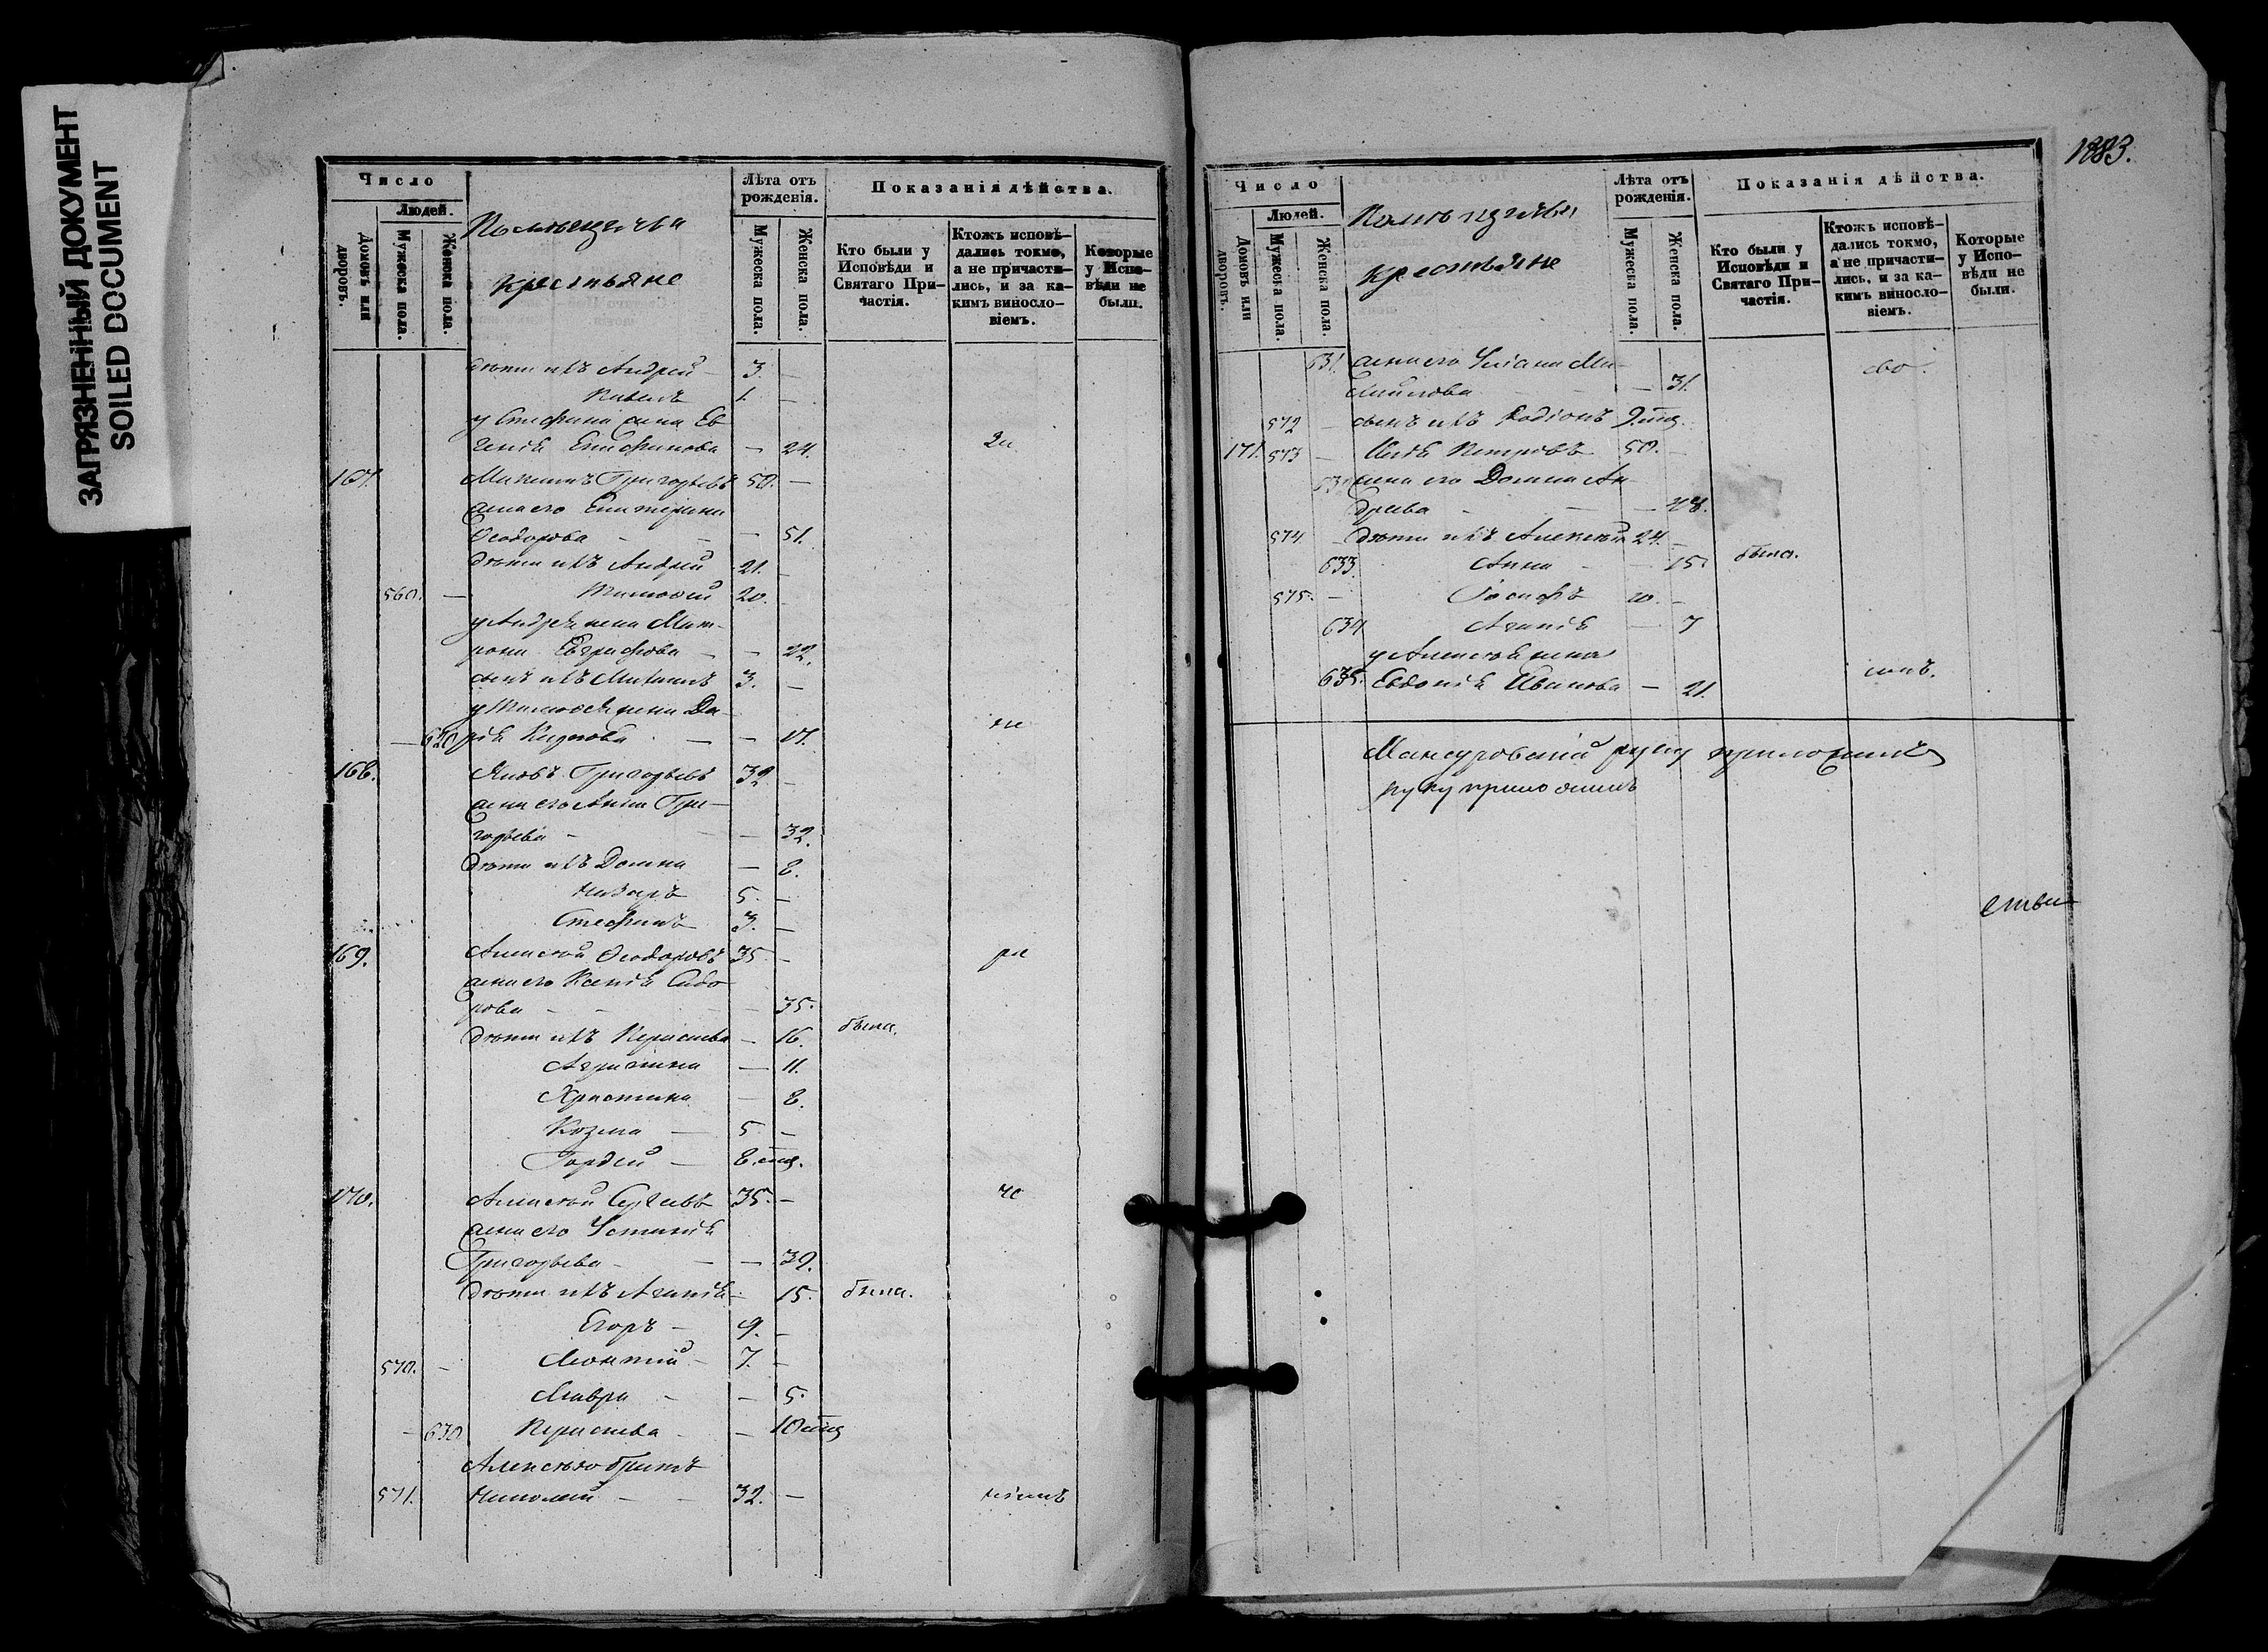 ЗАГРЯЗНЕННЫЙ ДОКУМЕНТ
SOILED DOCUMENT
Число
Людей.
Домовъ или дворовъ.
Мужеска пола.
Женска пола.
Помѣщичьи
крестьяне
Лѣта отъ рожденія.
Мужеска пола.
Женска пола.
Показанія дѣйства.
Кто были у Исповѣди и Святаго Причастія.
Ктожъ исповѣдались токмо, а не причастились, и за какимъ винословіемъ.
Которые у Исповѣди не были.
дѣти ихъ Андрей — 3. —
Павелъ 1. —
у Стефана жена Ев
генія Епифанова — 24. За
167. Григорьевъ 50. —
жена его Екатерина
Ѳеодорова — — 51.
дѣти ихъ Андрей 21. —
560. — Тимоѳей 20. —
у Андрея жена Мат-
рона Евграфова — — 22.
сынъ ихъ 3. —
у Тимоѳея жена Да-
— 620 рія — — 17. не
168. Яковъ Григорьевъ 32 —
жена его Гри-
горьева — — — 32.
дѣти ихъ Домна — 8.
Назаръ 5. —
Стефанъ 3. —
169. Алексѣй Ѳеодоровъ 35 — ра
жена его Ксенія Сидо
рова — — — 35.
дѣти ихъ Парасковья — 16. была.
Агрипина — 11.
Христина — 8.
Козма — 5 —
Гордей — 8. мѣц.
170. Алексѣй Сергѣевъ 35. — че
жена его Устинія
Григорьева — — — 39.
дѣти ихъ Агапія — 15. была.
Егоръ — 9. —
570. — Леонтій — 7. —
Мавра — — 5.
— 630 — — 10 мѣц
Алексѣю братъ
571. Николай — — 32. — ніемъ
1883.
Число
Людей.
Домовъ или дворовъ.
Мужеска пола.
Женска пола.
Помѣщичьи
крестьяне
Лѣта отъ рожденія.
Мужеска пола.
Женска пола.
Показанія дѣйства.
Кто были у Исповѣди и Святаго Причастія.
Ктожъ исповѣдались токмо, а не причастились, и за какимъ винословіемъ.
Которые у Исповѣди не были.
631. жена его Ми-
хайлова — — 31. сво.
572 — сынъ ихъ Родіонъ 9. мѣц.
171. 573 — Петровъ 50. —
жена его Домна Ан-
дреева — — — 48.
574 — дѣти ихъ Алексѣй 24. —
633. Анна — — 15. была.
575. — Іосифъ 10. —
634 Агапія — 7
у Алексѣя жена
635. Евдокія Иванова — 21. имъ.
руку приложилъ
руку приложилъ